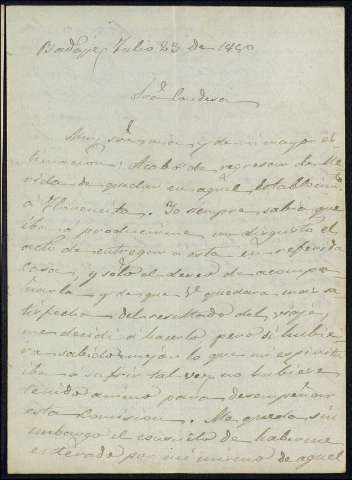 Badajoz Julio 23 de 1890
Sra Condesa
Muy Sra mia y de mi mayor es
timacion: Acabo de regresar de Me
rida de quedar en aquel Establecimto
á Florencita. Yo siempre sabia que
iba a producirme un disgusto el
acto de entregar á esta en referida
casa, y solo el deseo de acompa
ñarla y de que V. quedara mas sa
tisfecha del resultado del viaje,
me decidí a hacerlo pero si hubie
ra sabido mejor lo que mi espiritu
iba a sufrir tal vez no hubiere
tenido animo para desempeñar
esta Comision. Me queda sin
embargo el consuelo de haberme
enterado por mi mismo de aquel